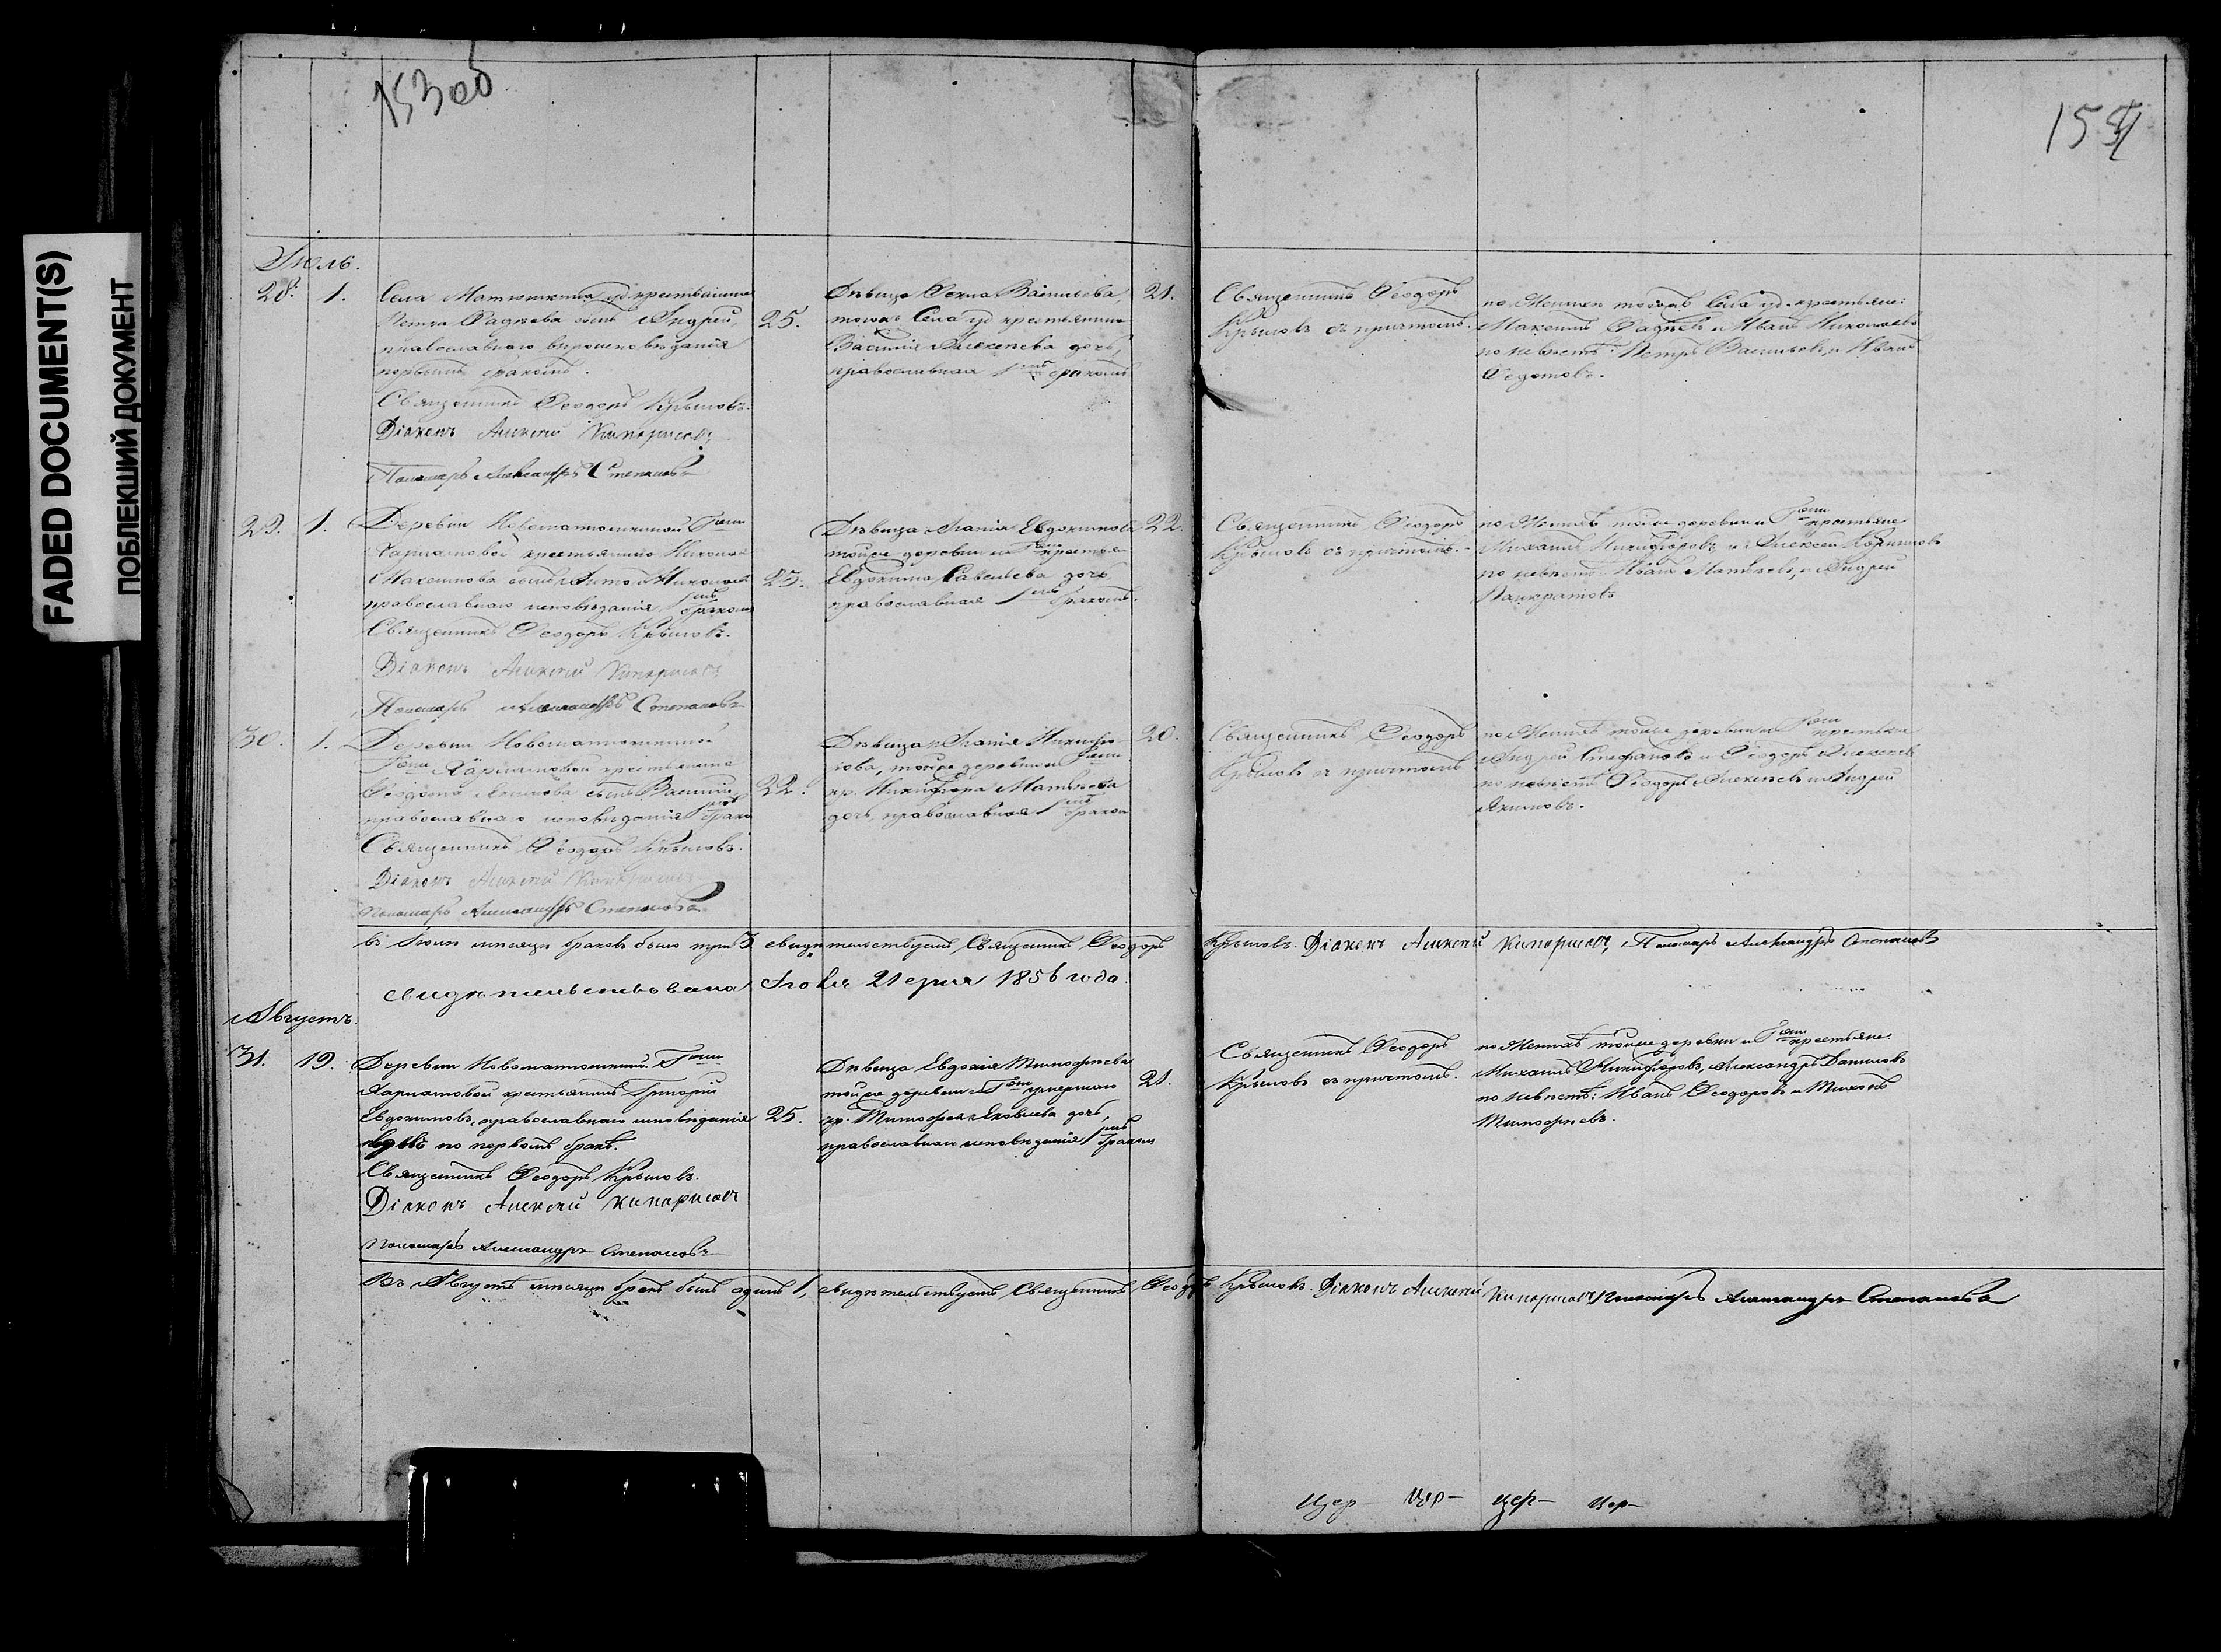 FADED DOCUMENT(S)
ПОБЛЕКШИЙ ДОКУМЕНТ
153 об
154
Іюль.
28. 1.
Села Матюшкина уд. крестьянина
Петра Фадѣева сынъ Андрей,
православнаго вѣроисповѣданія
первымъ бракомъ.
25.
Священникъ Ѳеодоръ Крыловъ.
Діаконъ Алексѣй Кипарисовъ
Пономарь Александръ Степановъ
Дѣвица Ѳекла Васильева
тогожъ Села уд. крестьянина
Василія Алексѣева дочь,
православная 1мъ бракомъ
21.
Священникъ Ѳеодоръ
Крыловъ съ причтомъ.
по Женихѣ тогожъ Села уд. крестьяне:
Максимъ Фадѣевъ и Иванъ Николаевъ
по невѣстѣ: Петръ Васильевъ, и Иванъ
Ѳедотовъ.
29. 1.
Деревни Новоматюшкиной Гжи
Харламовой крестьянина Николая
Максимова сынъ
православнаго исповѣданія, 1мъ бракомъ
Священникъ Ѳеодоръ Крыловъ.
Діаконъ Алексѣй Кипарисовъ
Пономарь Александръ Степановъ
Дѣвица Евдокимова
тойже деревни и Гжи
Евдокима Савельева дочь
православная 1мъ бракомъ.
22.
Священникъ Ѳеодоръ
Крыловъ съ причтомъ.
по Женихѣ тойже деревни и Гжи крестьяне
Михаилъ Никифоровъ и Алексѣй
по невѣстѣ: Иванъ Матвѣевъ, и Андрей
Панкратовъ
30. 1.
Деревни Новоматюшкиной
Гжи Харламовой крестьянина
сынъ Василій
православнаго исповѣданія 1мъ бракомъ
22.
Священникъ Ѳеодоръ Крыловъ.
Діаконъ Алексѣй Кипарисовъ
Пономарь Александръ Степановъ
Дѣвица Никифорова, тойже деревни и Гжи
кр. Никифора Матвѣева
дочь, православная 1мъ бракомъ
20.
Священникъ Ѳеодоръ
Крыловъ съ причтомъ
по Женихѣ тойже деревни и Гжи крестьяне
Андрей Стефановъ и Ѳеодоръ Алексѣевъ
по невѣстѣ Ѳеодоръ Алексѣевъ и Андрей
Якимовъ.
въ Іюлѣ мѣсяцѣ браковъ было три 3 свидѣтельствуемъ Священникъ Ѳеодоръ Крыловъ. Діаконъ Алексѣй Кипарисовъ, Пономарь Александръ Степановъ
свидѣтельствовала 21 дня 1856 года.
Августъ.
31. 19.
Деревни Новоматюшкиной Гжи
Харламовой крестьянинъ Григорій
Евдокимовъ, православнаго исповѣданія
вдовъ по первомъ бракѣ.
25.
Священникъ Ѳеодоръ Крыловъ.
Діаконъ Алексѣй Кипарисовъ
Пономарь Александръ Степановъ
Дѣвица Евдокія Тимофѣева
тойже деревни и Гжи умершаго
кр. Тимофея Яковлева дочь,
православнаго исповѣданія 1мъ бракомъ
21.
Священникъ Ѳеодоръ
Крыловъ съ причтомъ.
по Женихѣ тойже деревни и Гжи крестьяне.
Михаилъ Никифоровъ, Александръ Даниловъ
по невѣстѣ: Иванъ Ѳеодоровъ и Тихонъ
Тимофѣевъ.
Въ Августѣ мѣсяцѣ бракъ былъ одинъ 1, свидѣтельствуемъ Священникъ Ѳеодоръ Крыловъ. Діаконъ Алексѣй Кипарисовъ, Пономарь Александръ Степановъ